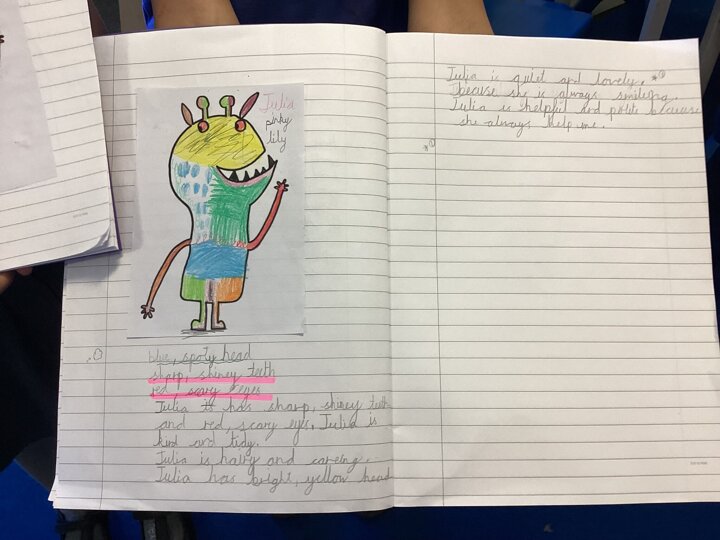 Julia
pinky
lily
blue, spoty head
sharp, shiney teeth
red scary eyes
Julia is has sharp, shiney teeth
and red, scary eyes. Julia is
kind and tidy.
Julia is hairy and careing.
Julia has bright, yellow head
Julia is quiet and lovely.
because she is always smileing.
Julia is helpful and polite because
she always help me.